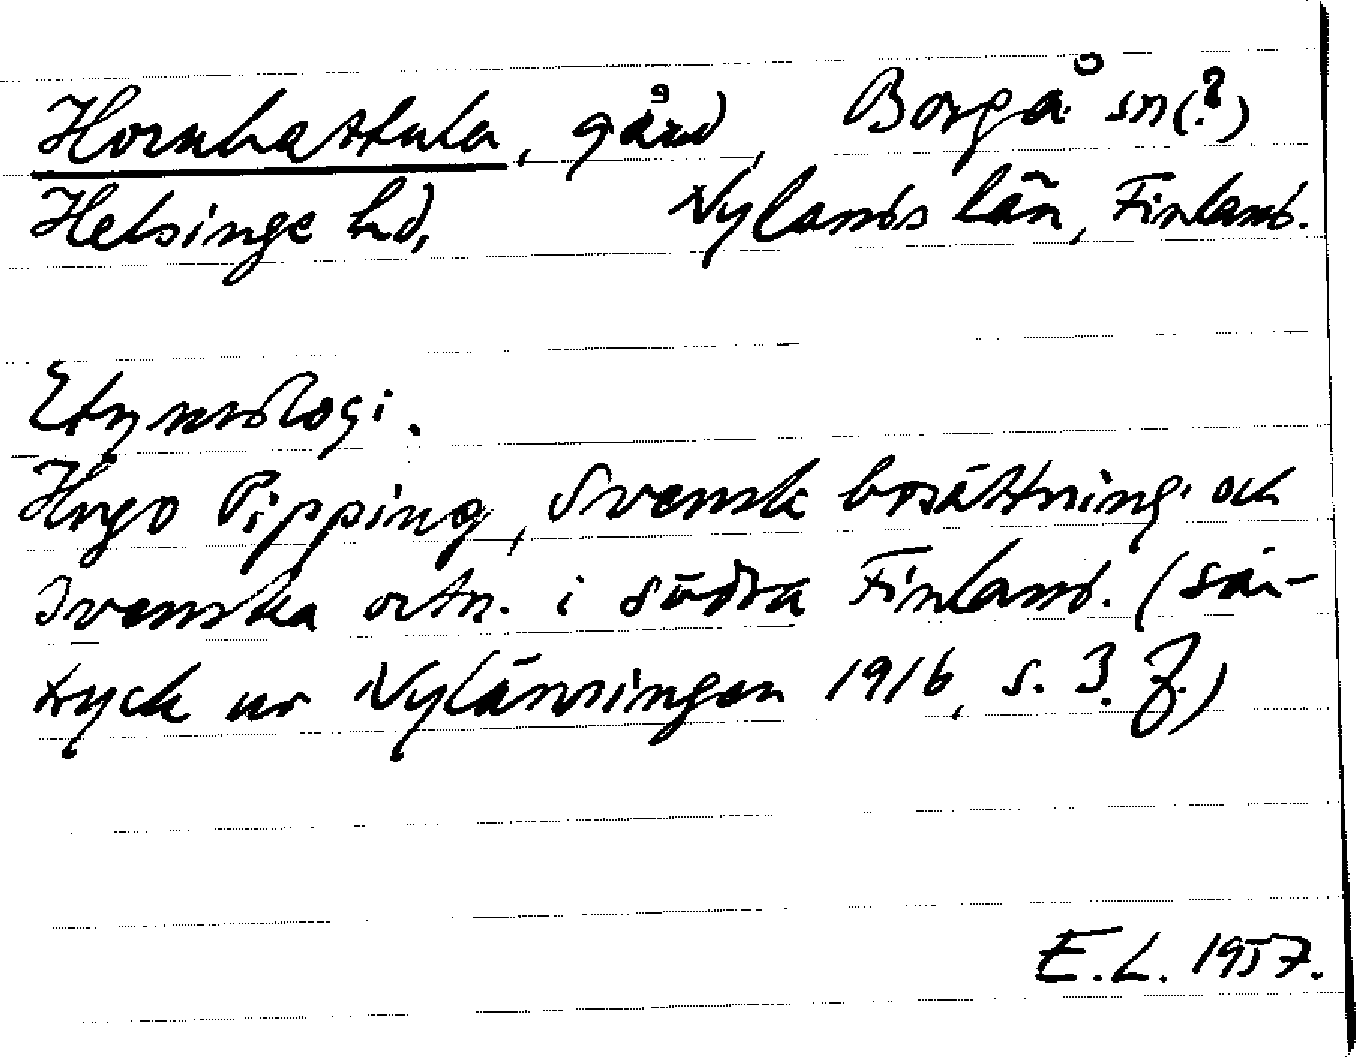 Hornhattula, gård, Borgå sn(?)
Helsinge hd, Nylands län, Finland.
Etymologi.
Hugo Pipping, Svensk bosättning och
svenska ortn. i södra Finland. (sär-
tryck ur Nylänningen 1916, s. 3 f.)
E.L. 1957.